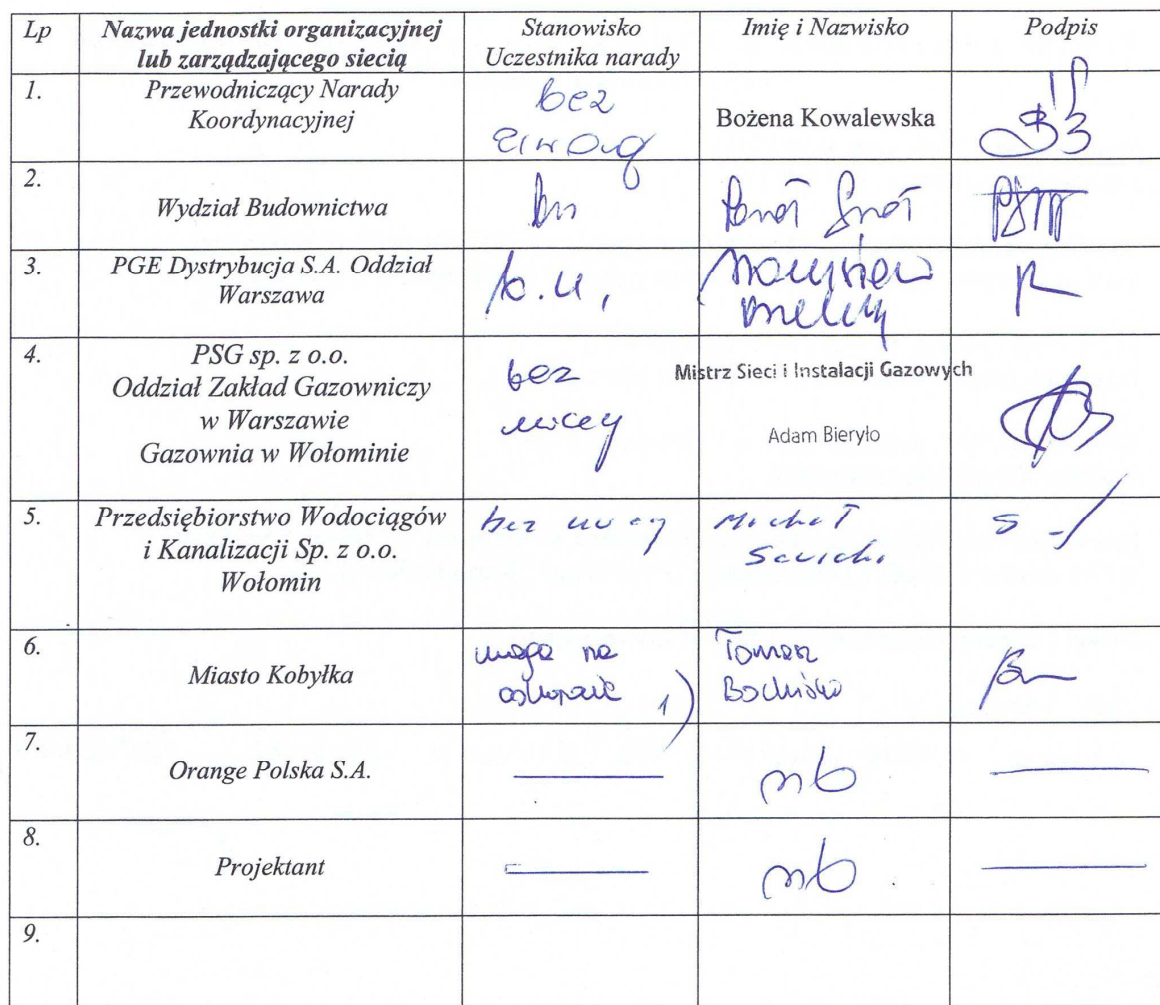 Lp Nazwa jednostki organizacyjnej lub zarządzającego siecią Stanowisko Uczestnika narady Imię i Nazwisko Podpis
1. Przewodniczący Narady
Koordynacyjnej
bez
Bożena Kowalewska
2. Wydział Budownictwa
3. PGE Dystrybucja S.A. Oddział
Warszawa
b.u.
4. PSG sp. z o.o.
Oddział Zakład Gazowniczy
w Warszawie
Gazownia w Wołominie
bez
Mistrz Sieci i Instalacji Gazowych
Adam Bieryło
5. Przedsiębiorstwo Wodociągów
i Kanalizacji Sp. z o.o.
Wołomin
bez uwag
Michał
6. Miasto Kobyłka
uwaga na
1)
Tomasz
7. Orange Polska S.A.
nb
8. Projektant
nb
9.